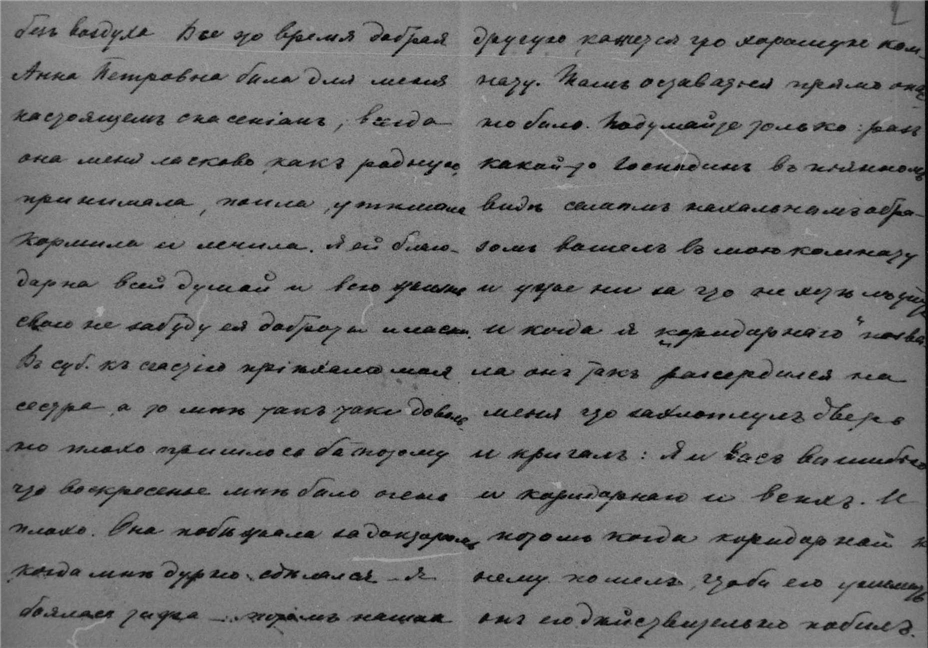 2
безъ воздуха Все это время добрая
Анна Петровна была для меня
настоящемъ спасеніемъ, всегда
она меня ласково какъ родную
принимала, поила, утѣшала
кормила и лечила. Я ей благо-
дарна всей душой и всю жизнь
свою не забуду ея доброты и ласки.
Въ суб. къ счастію пріѣхала моя
сестра, а то мнѣ такъ таки доволь-
но плохо пришлось бы потому
что воскресенье мнѣ было очень
плохо. Она побѣжала за докторомъ
когда мнѣ дурно сдѣлалось – Я
боялась тифа – потомъ нашли
другую кажется что хорошую ком-
нату. Тамъ оставаться прямо опас
но было. Подумайте только: разъ
какой-то господинъ въ пьянномъ
видѣ самымъ нахальнымъ обра-
зомъ вошелъ въ мою комнату
и уже ни за что не хотѣлъ уйти
и когда я "коридорнаго" позва-
ла онъ такъ разсердился на
меня что захлопнулъ дверь
и кричалъ: Я и васъ вышибу
и коридорнаго и всѣхъ. И
потомъ когда коридорный къ
нему пошелъ, чтобы его унимать
онъ его дѣйствительно побилъ.